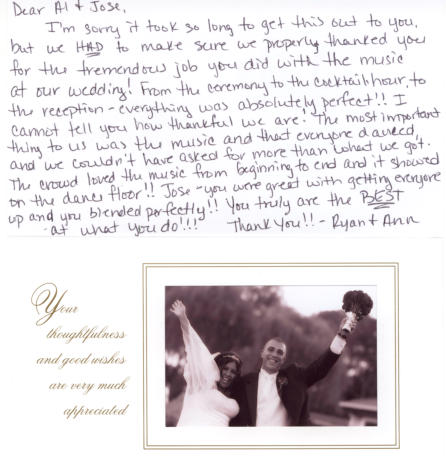 Dear Al + Jose,
I'm sorry it took so long to get this out to you,
but we HAD to make sure we properly thanked you
for the tremendous job you did with the music
at our wedding! From the ceremony to the cocktail hour, to
the reception - everything was absolutely perfect!! I
cannot tell you how thankful we are. The most important
thing to us was the music and that everyone danced,
and we couldn't have asked for more than what we got.
The crowd loved the music from beginning to end and it showed
on the dance floor!! Jose - you were great with getting everyone
up and you blended perfectly!! You truly are the BEST
at what you do!!! Thank You!! - Ryan + Ann
Your
thoughtfulness
and good wishes
are very much
appreciated